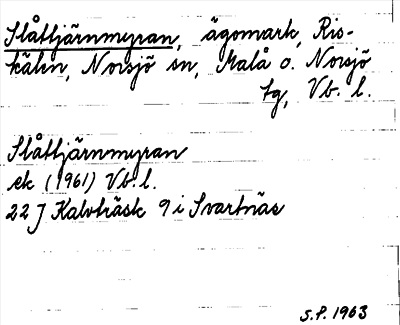 Slåttjärnmyran, ägomark, Ris-
kälen, Norsjö sn, Malå o. Norsjö
tg, Vb. l.
Slåttjärnmyran
ek (1961) Vb. l.
22 J Kalvträsk 9 i Svartnäs
S.P. 1963